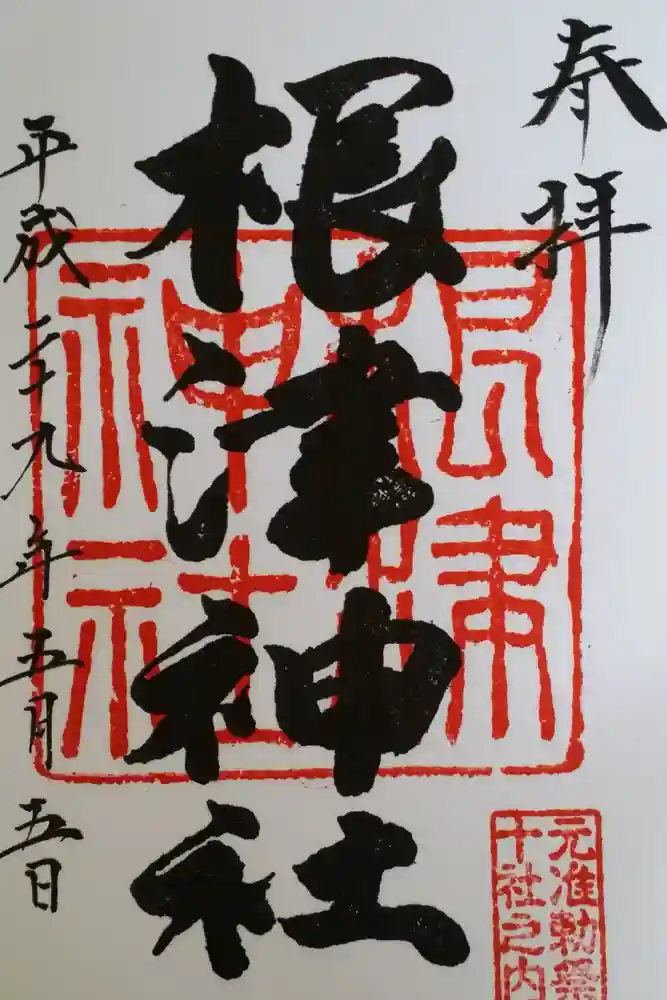 奉拝
根津神社
平成二十九年五月五日
根津
神社
元准勅祭
十社之内